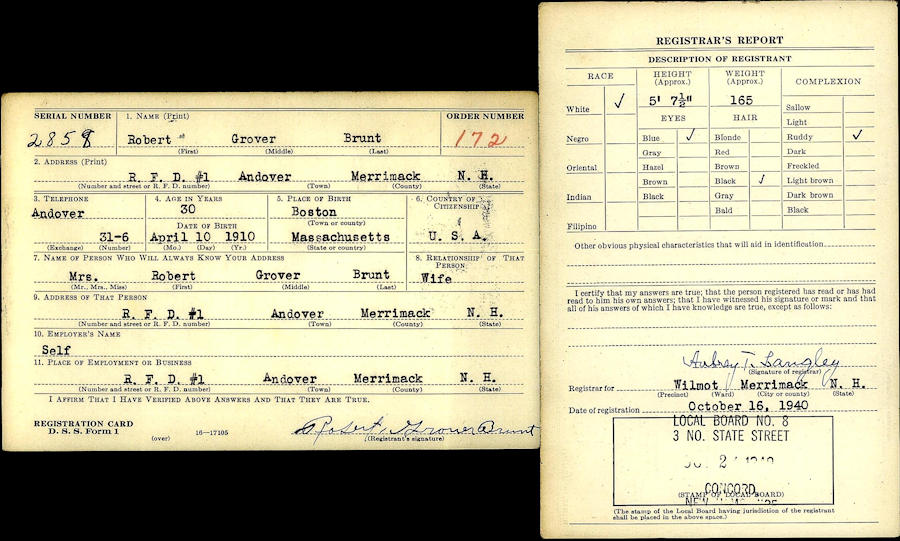 SERIAL NUMBER 1. NAME (Print) ORDER NUMBER
2858 Robert Grover Brunt 172
(First) (Middle) (Last)
2. ADDRESS (Print)
R. F. D. #1 Andover Merrimack N. H.
(Number and street or R. F. D. number) (Town) (County) (State)
3. TELEPHONE 4. AGE IN YEARS 5. PLACE OF BIRTH 6. COUNTRY OF CITIZENSHIP
Andover 30 Boston
DATE OF BIRTH (Town or county)
31-6 April 10 1910 Massachusetts U. S. A.
(Exchange) (Number) (Mo.) (Day) (Yr.) (State or country)
7. NAME OF PERSON WHO WILL ALWAYS KNOW YOUR ADDRESS 8. RELATIONSHIP OF THAT PERSON
Mrs. Robert Grover Brunt Wife
(Mr., Mrs., Miss) (First) (Middle) (Last)
9. ADDRESS OF THAT PERSON
R. F. D. #1 Andover Merrimack N. H.
(Number and street or R. F. D. number) (Town) (County) (State)
10. EMPLOYER'S NAME
Self
11. PLACE OF EMPLOYMENT OR BUSINESS
R. F. D. #1 Andover Merrimack N. H.
(Number and street or R. F. D. number) (Town) (County) (State)
I AFFIRM THAT I HAVE VERIFIED ABOVE ANSWERS AND THAT THEY ARE TRUE.
REGISTRATION CARD
D. S. S. Form 1 (over) 16—17105 Robert Grover Brunt
(Registrant's signature)
REGISTRAR'S REPORT
DESCRIPTION OF REGISTRANT
RACE HEIGHT (Approx.) WEIGHT (Approx.) COMPLEXION
White ✓ 5' 7½" 165 Sallow
EYES HAIR Light
Negro Blue ✓ Blonde Ruddy ✓
Gray Red Dark
Oriental Hazel Brown Freckled
Brown Black ✓ Light brown
Indian Black Gray Dark brown
Bald Black
Filipino
Other obvious physical characteristics that will aid in identification
I certify that my answers are true; that the person registered has read or has had
read to him his own answers; that I have witnessed his signature or mark and that
all of his answers of which I have knowledge are true, except as follows:
Aubrey T. Langley
(Signature of registrar)
Registrar for Wilmot Merrimack N. H.
(Precinct) (Ward) (City or county) (State)
Date of registration October 16, 1940
LOCAL BOARD NO. 8
3 NO. STATE STREET
CONCORD
(STAMP OF LOCAL BOARD)
(The stamp of the Local Board having jurisdiction of the registrant
shall be placed in the above space.)